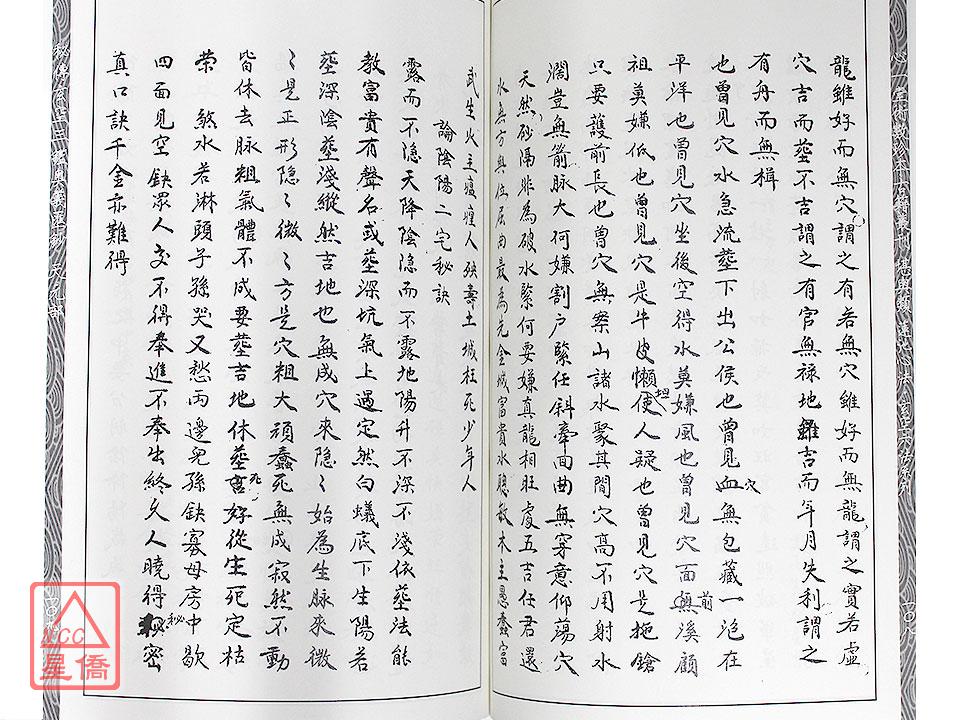 龍雖好而無穴謂之有若無穴雖好而無龍謂之實若虛
穴吉而塟不吉謂之有官無祿地雖吉而年月失利謂之
有舟而無楫
也曾見穴水急流塟下出公侯也曾見血穴無包藏一泡在
平洋也曾見穴坐後空得水莫嫌風也曾見穴面前無溪顧
祖莫嫌低也曾見穴是牛皮懶坦使人疑也曾見穴是拖鎗
只要護前長也曾穴無案山諸水聚其間穴高不用射水
濶豈無箭脉大何嫌割户緊任斜牽面曲無穿意仰蕩穴
天然砂隔非為破水緊何要嫌真龍相旺處五吉任君還
水無方與位居向最為先金城富貴水聰敏木主愚蠢富
武生火主瘟㾮人殀壽土城枉死少年人
論陰陽二宅秘訣
露而不隐天降陰隐而不露地陽升不深不淺依塟法能
教富貴有聲名或塟深坑氣上過定然白蟻底下生陽若
塟深陰塟淺縱然吉地也無成穴來隐〻始為生脉來微
〻是正形隐〻微〻方是穴粗大頑蠢死無成寂然不動
皆休去脉粗氣體不成要塟吉地休塟死吉好從生死定枯
榮 煞水若淋頭子孫哭又愁兩邊兒孫缺寡母房中歇
四面見空缺眾人交不得奉進不奉出終久人曉得秘密
真口訣千金亦難得
NCC
星僑